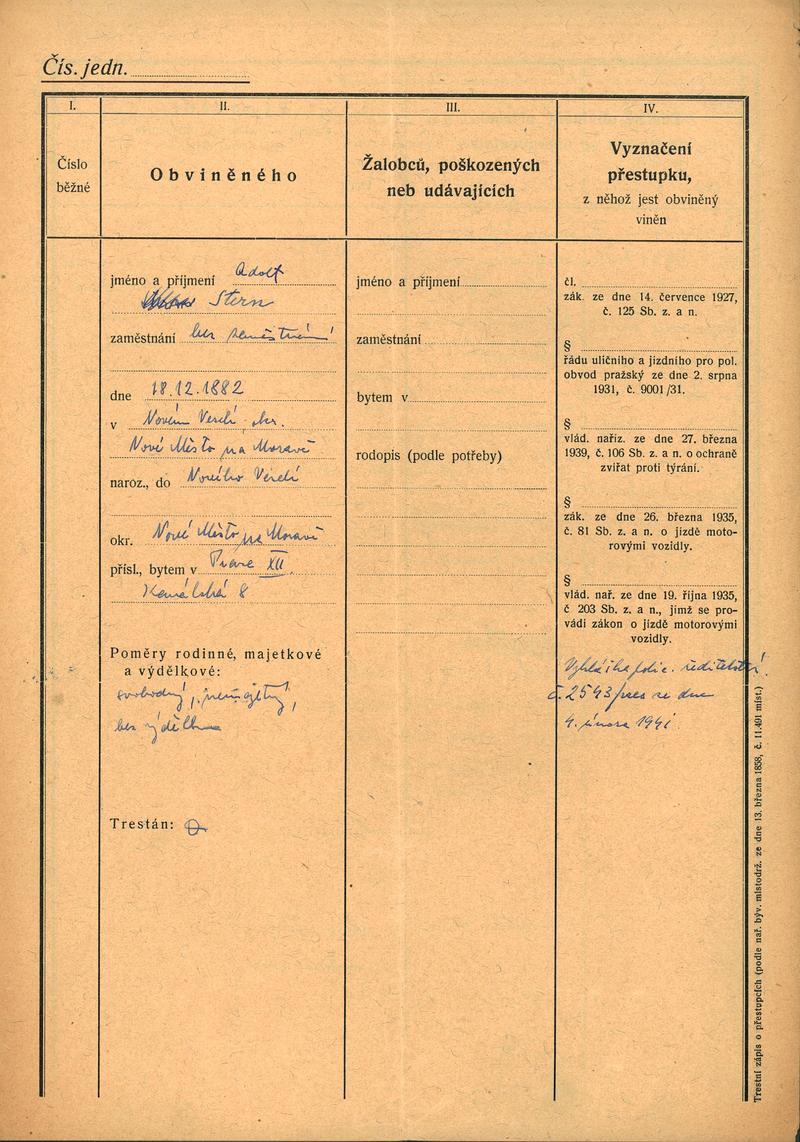 Čís. jedn.
I.
II.
III.
IV.
Číslo
běžné
Obviněného
Žalobců, poškozených
neb udávajících
Vyznačení
přestupku,
z něhož jest obviněný
viněn
jméno a příjmení Adolf
Stern
zaměstnání bez zaměstnání
dne 18.12.1882
v Novém Veselí okr.
Nové Město na Moravě
naroz., do Nového Veselí
okr. Nové Město na Moravě
přísl., bytem v Praze XII
8
Poměry rodinné, majetkové
a výdělkové:
svobodný, nemajetný,
bez výdělku
Trestán: 0
jméno a příjmení
zaměstnání
bytem v
rodopis (podle potřeby)
čl.
zák. ze dne 14. července 1927,
č. 125 Sb. z. a n.
§
řádu uličního a jízdního pro pol.
obvod pražský ze dne 2. srpna
1931, č. 9001/31.
§
vlád. naříz. ze dne 27. března
1939, č. 106 Sb. z. a n. o ochraně
zvířat proti týrání.
§
zák. ze dne 26. března 1935,
č. 81 Sb. z. a n. o jízdě moto-
rovými vozidly.
§
vlád. nař. ze dne 19. října 1935,
č 203 Sb. z. a n., jímž se pro-
vádí zákon o jízdě motorovými
vozidly.
Vyhláška polic. ředitelství
č. 2543/pres ze dne
4. února 1941
Trestní zápis o přestupcích (podle nař. býv. místodrž. ze dne 13. března 1858, č. 11.491 míst.)